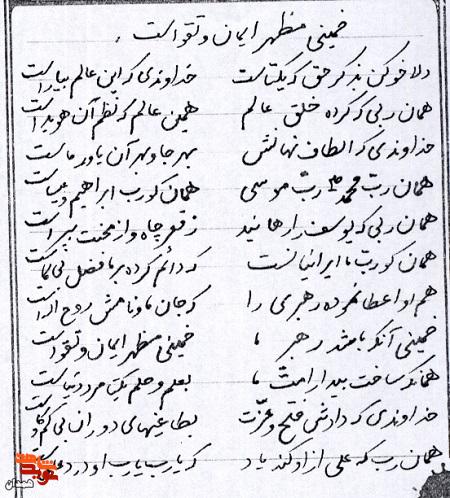 خمینی مظهر ایمان و تقواست .
دلا خو کن بذکر حق که یکتاست خداوندی که این عالم بیاراست
همان ربی که کرده خلق عالم همین عالم که نظم آن هویداست
خداوندی که الطاف نهانش بهر جا و بهر آن یاور ماست
همان رب محمد ص رب موسی همان کو رب ابراهیم و عیساست
همان ربی که یوسف را رهانید ز قعر چاه و از محنت بپیراست
همان کو رب ما ایرانیانست که دائم کرده بر ما فضل بی کاست
هم او اعطا نموده رهبری را که جان ما و نامش روح افزاست
خمینی آنکه باشد رهبر ما خمینی مظهر ایمان و تقواست
همانکه ساخت بیدار امت ما بعلم و حلم یک مرد
خداوندی که دادش فتح و عزت بطاغیهای دوران بی کم و کاست
همان رب که علی از او کند یاد که یارب یارب او در